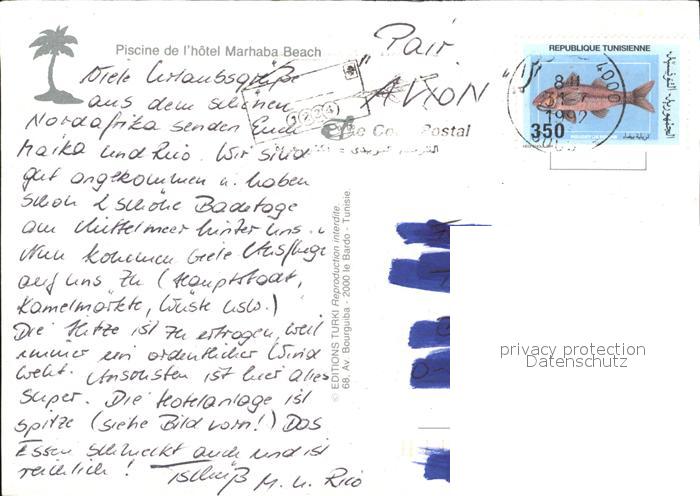 Piscine de l'hôtel Marhaba Beach
Viele Urlaubsgrüße
aus dem schönen
Nordafrika senden Euch
Maika und Rico. Wir sind
gut angekommen u. haben
schon 2 schöne Badetage
am Mittelmeer hinter uns.
Nun kommen viele Ausflüge
auf uns zu (Hauptstadt,
Kamelmärkte, Wüste usw.)
Die Hitze ist zu ertragen, weil
immer ein ordentlicher Wind
weht. Ansonsten ist hier alles
super. Die Hotelanlage ist
spitze (siehe Bild vorn!) Das
Essen schmeckt auch und ist
reichlich! Tschüß M. u. Rico
"Par
AVION"
Le Code Postal
REPUBLIQUE TUNISIENNE
الجمهورية التونسية
350
4000
1992
© EDITIONS TURKI Reproduction interdite.
68, Av Bourguiba - 2000 le Bardo - Tunisie.
privacy protection
Datenschutz